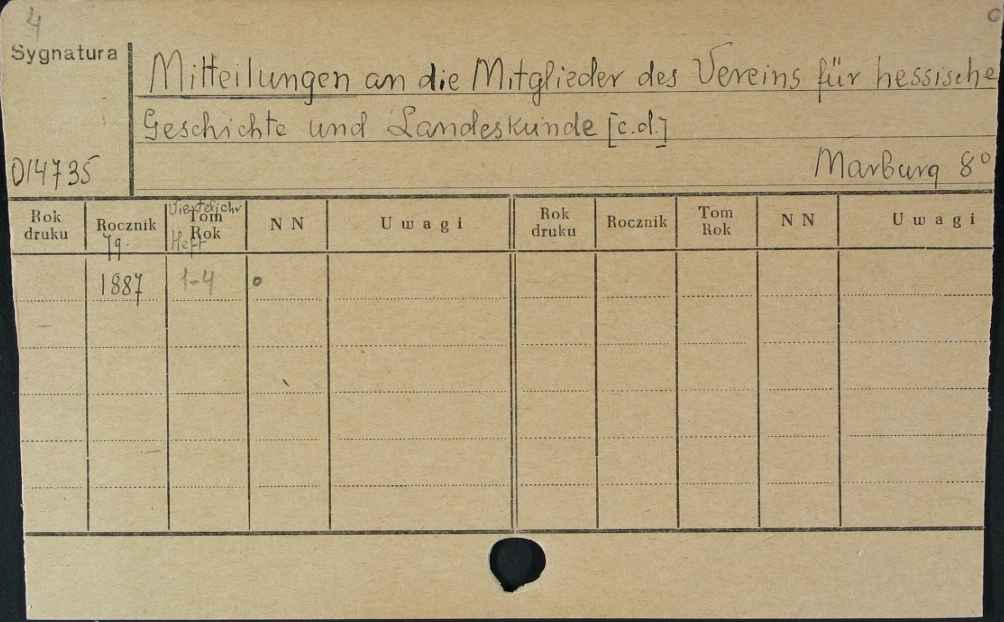 4 c
Sygnatura
Mitteilungen an die Mitglieder des Vereins für hessische
Geschichte und Landeskunde [c.d.]
014735
Marburg 8°
Rok druku Rocznik Tom Rok NN Uwagi Rok druku Rocznik Tom Rok NN Uwagi
Jg. Vierteljahr Heft
1887 1-4 o